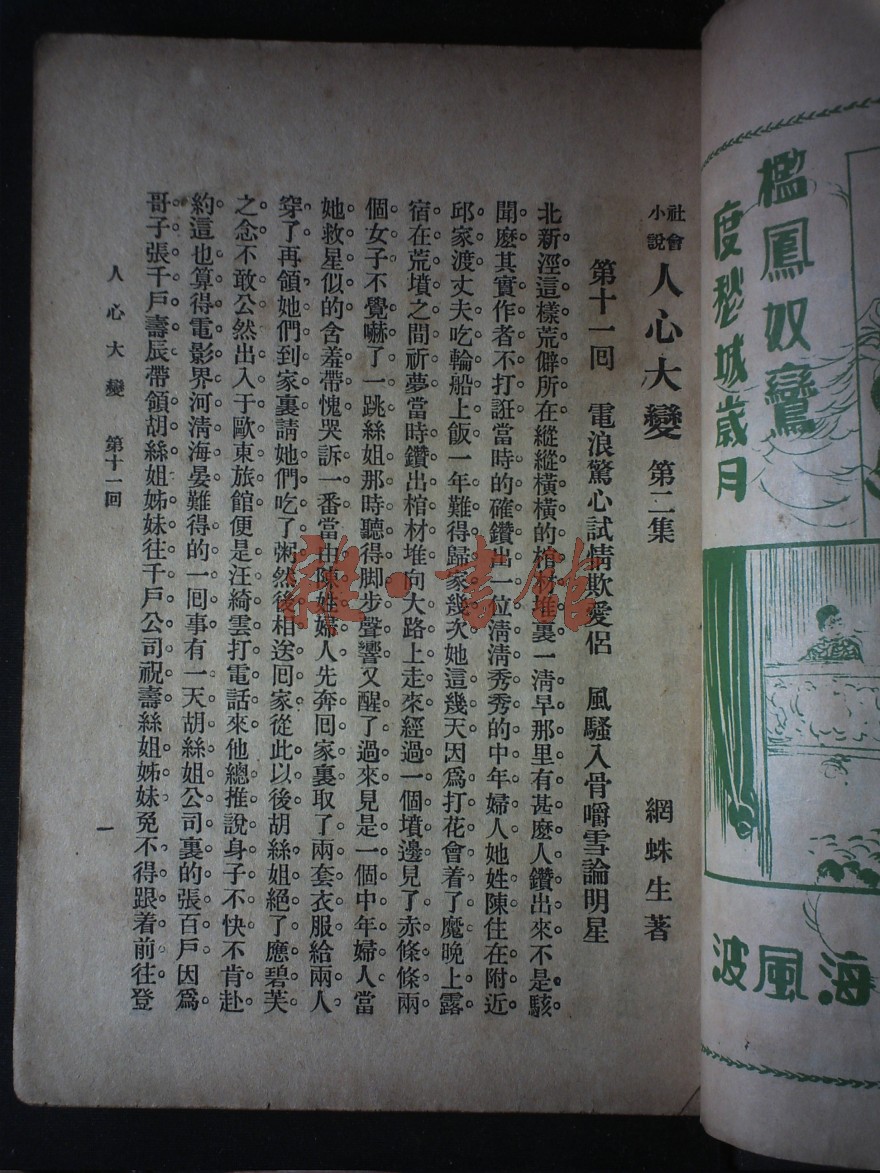 社會小說 人心大變 第二集 網蛛生著
第十一回 電浪驚心試情欺愛侶 風騷入骨嚼雪論明星
北新涇這樣荒僻所在縱縱橫橫的棺材堆裏一淸早那里有甚麽人鑽出來不是駭
聞麽其實作者不打誑當時的確鑽出一位淸淸秀秀的中年婦人她姓陳住在附近
邱家渡丈夫吃輪船上飯一年難得歸家幾次她這幾天因爲打花會着了魔晚上露
宿在荒墳之間祈夢當時鑽出棺材堆向大路上走來經過一個墳邊見了赤條條兩
個女子不覺嚇了一跳絲姐那時聽得脚步聲響又醒了過來見是一個中年婦人當
她救星似的含羞帶愧哭訴一番當由陳姓婦人先奔回家裏取了兩套衣服給兩人
穿了再領她們到家裏請她們吃了粥然後相送回家從此以後胡絲姐絕了應碧芙
之念不敢公然出入于歐東旅館便是汪綺雲打電話來他總推說身子不快不肯赴
約這也算得電影界河淸海晏難得的一回事有一天胡絲姐公司裏的張百戶因爲
哥子張千戶壽辰帶領胡絲姐姊妹往千戶公司祝壽絲姐姊妹免不得跟着前往登
人心大變 第十一回 一
檻鳳奴鸞
度愁城歲月
海風波
雜·書館